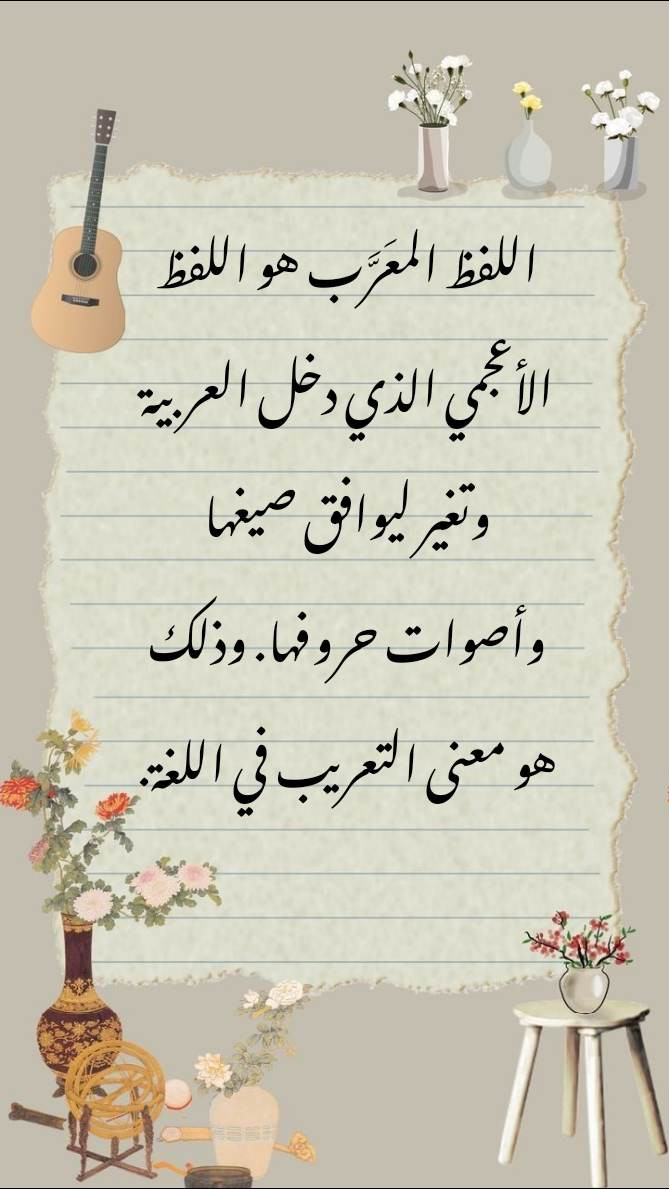 اللفظ المعَرَّب هو اللفظ
الأعجمي الذي دخل العربية
وتغير ليوافق صيغها
وأصوات حروفها. وذلك
هو معنى التعريب في اللغة.